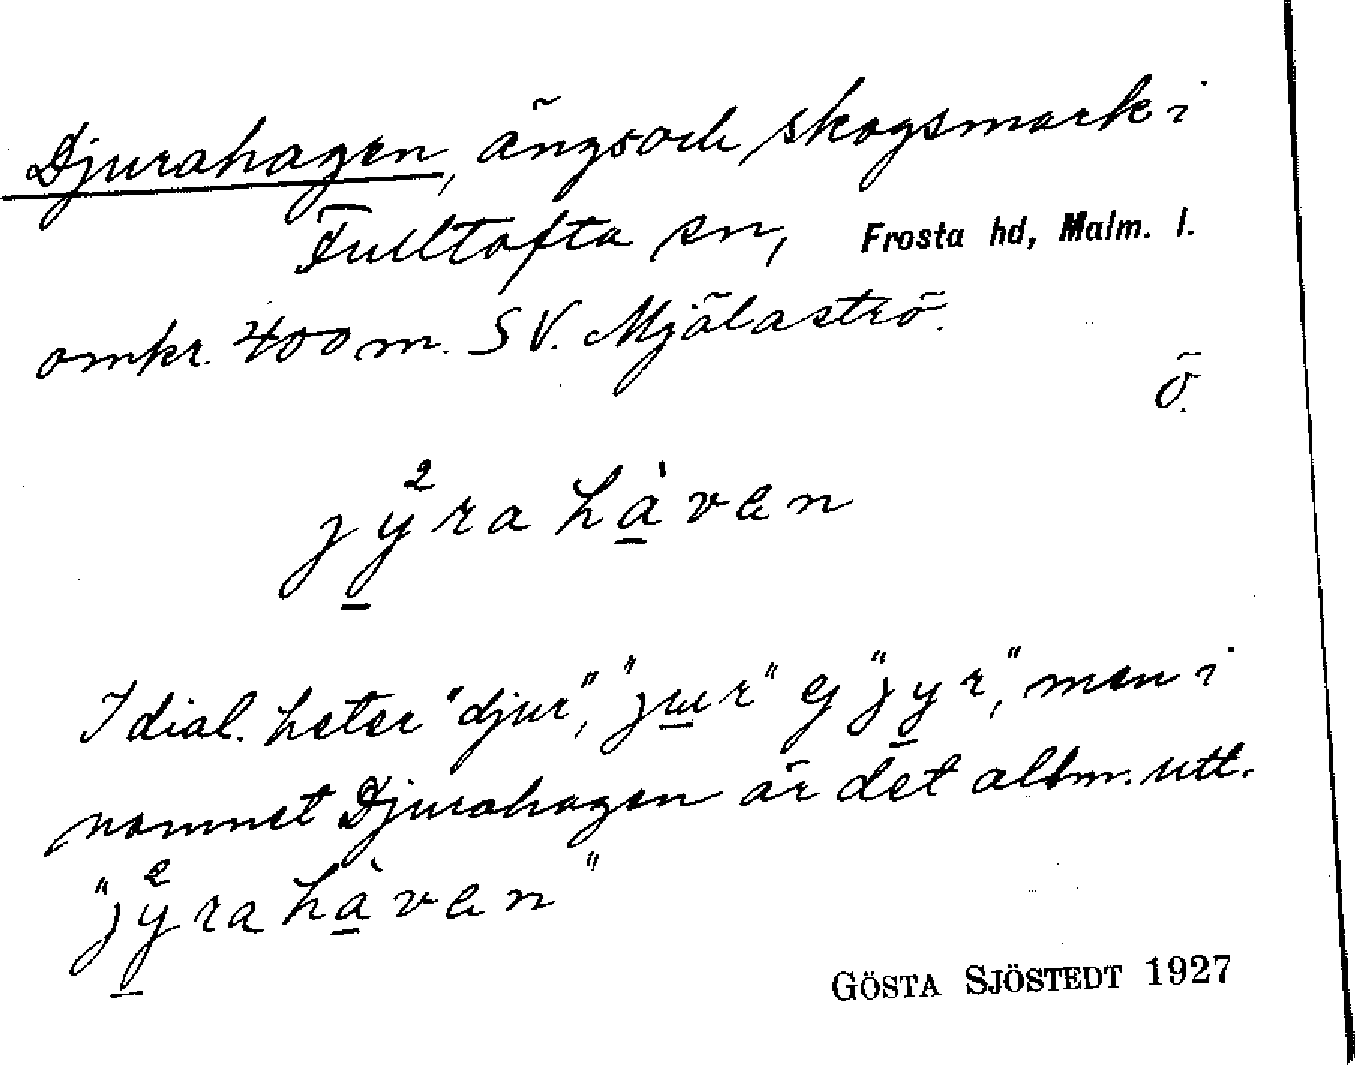 Djurahagen, ängs och skogsmark i
Fulltofta sn, Frosta hd, Malm. l.
omkr. 400 m. SV. Mjälaströ.
Ö.
jy̲²ra hà̲ven
I dial. heter "djur", "ju̲r" ej "jy̲r", men i
namnet Djurahagen är det allm. utt.
"jy̲²ra hà̲ven"
GÖSTA SJÖSTEDT 1927